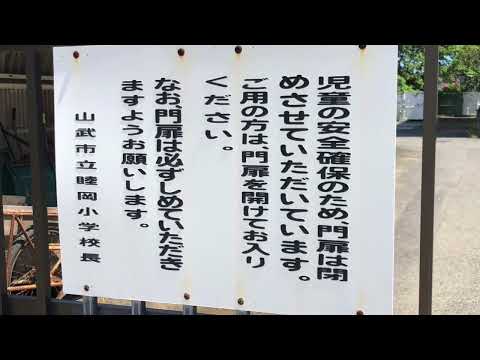 児童の安全確保のため、門扉は閉
めさせていただいています。
ご用の方は、門扉を開けてお入り
ください。
なお、門扉は必ずしめていただき
ますようお願いします。
山武市立睦岡小学校長